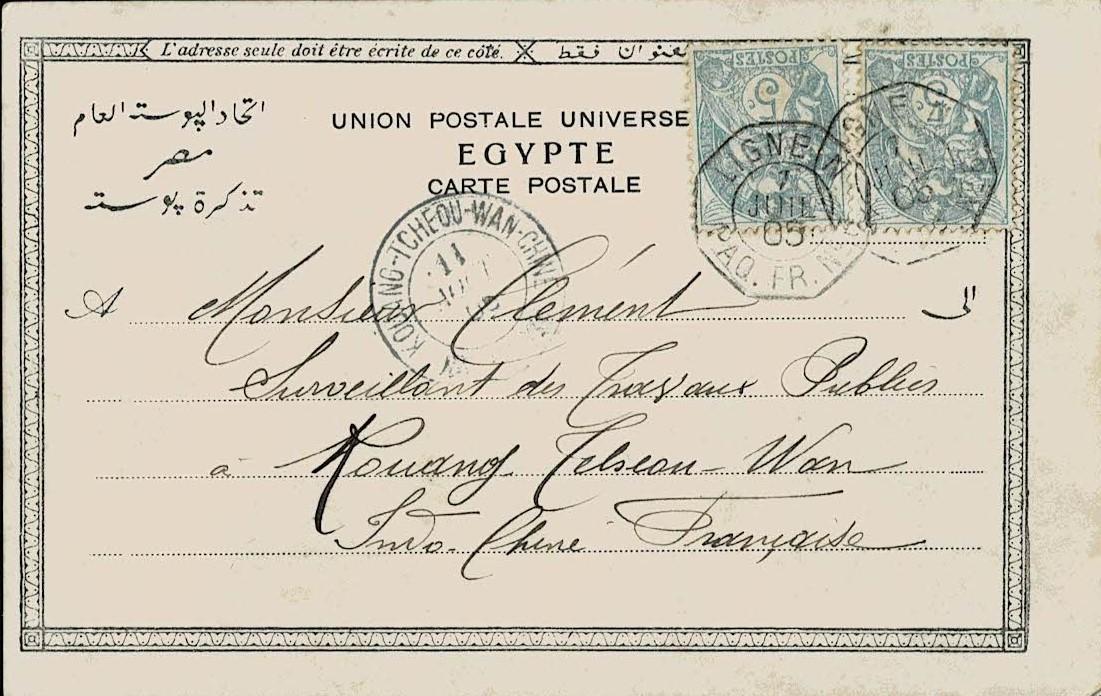 L'adresse seule doit être écrite de ce côté. العنوان فقط
اتحاد البوستة العام
مصر
تذكرة بوستة
UNION POSTALE UNIVERSE
EGYPTE
CARTE POSTALE
POSTES 5
POSTES 5
LIGNE N
1
JUIL
05
PAQ. FR. N
JUIL
05
KOUANG-TCHEOU-WAN-CHINE
11
AOUT
A Monsieur Clément الى
Surveillant des Travaux Publics
à Kouang Tcheou-Wan
Indo-Chine Française